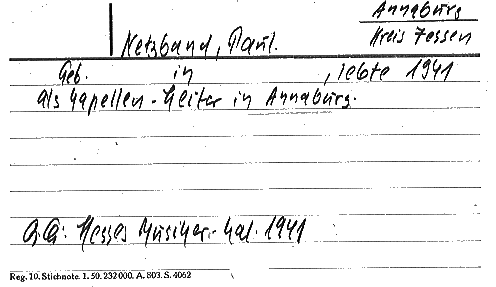 Annaburg
Kreis Jessen
Netzband, Paul.
Geb. in , lebte 1941
als Kapellen-Leiter in Annaburg.
Qu: Hesses Musiker-Kal. 1941
Reg. 10. Stichnote. 1. 50. 232000. A. 803. S. 4062